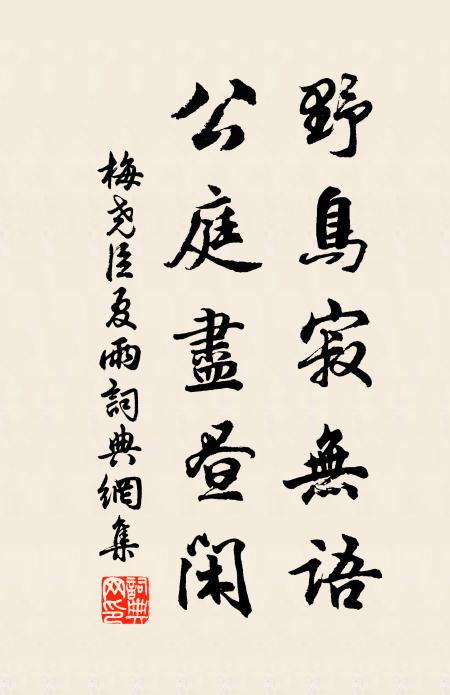 野鳥寂無語
公庭盡昼閑
梅堯臣夏雨詞典網集
詞典网印